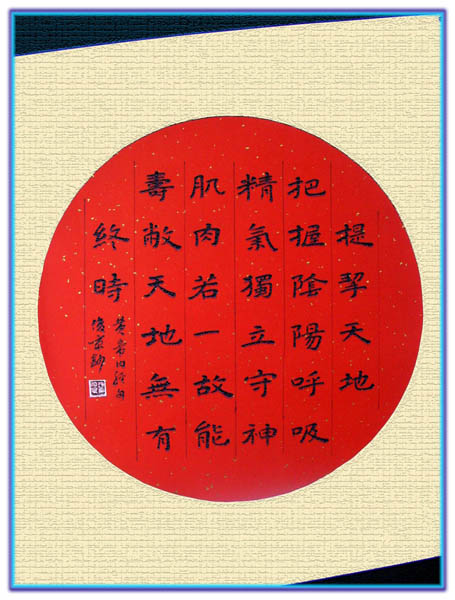 提挈天地
把握陰陽呼吸
精氣獨立守神
肌肉若一故能
壽敝天地無有
終時
黄帝内經句